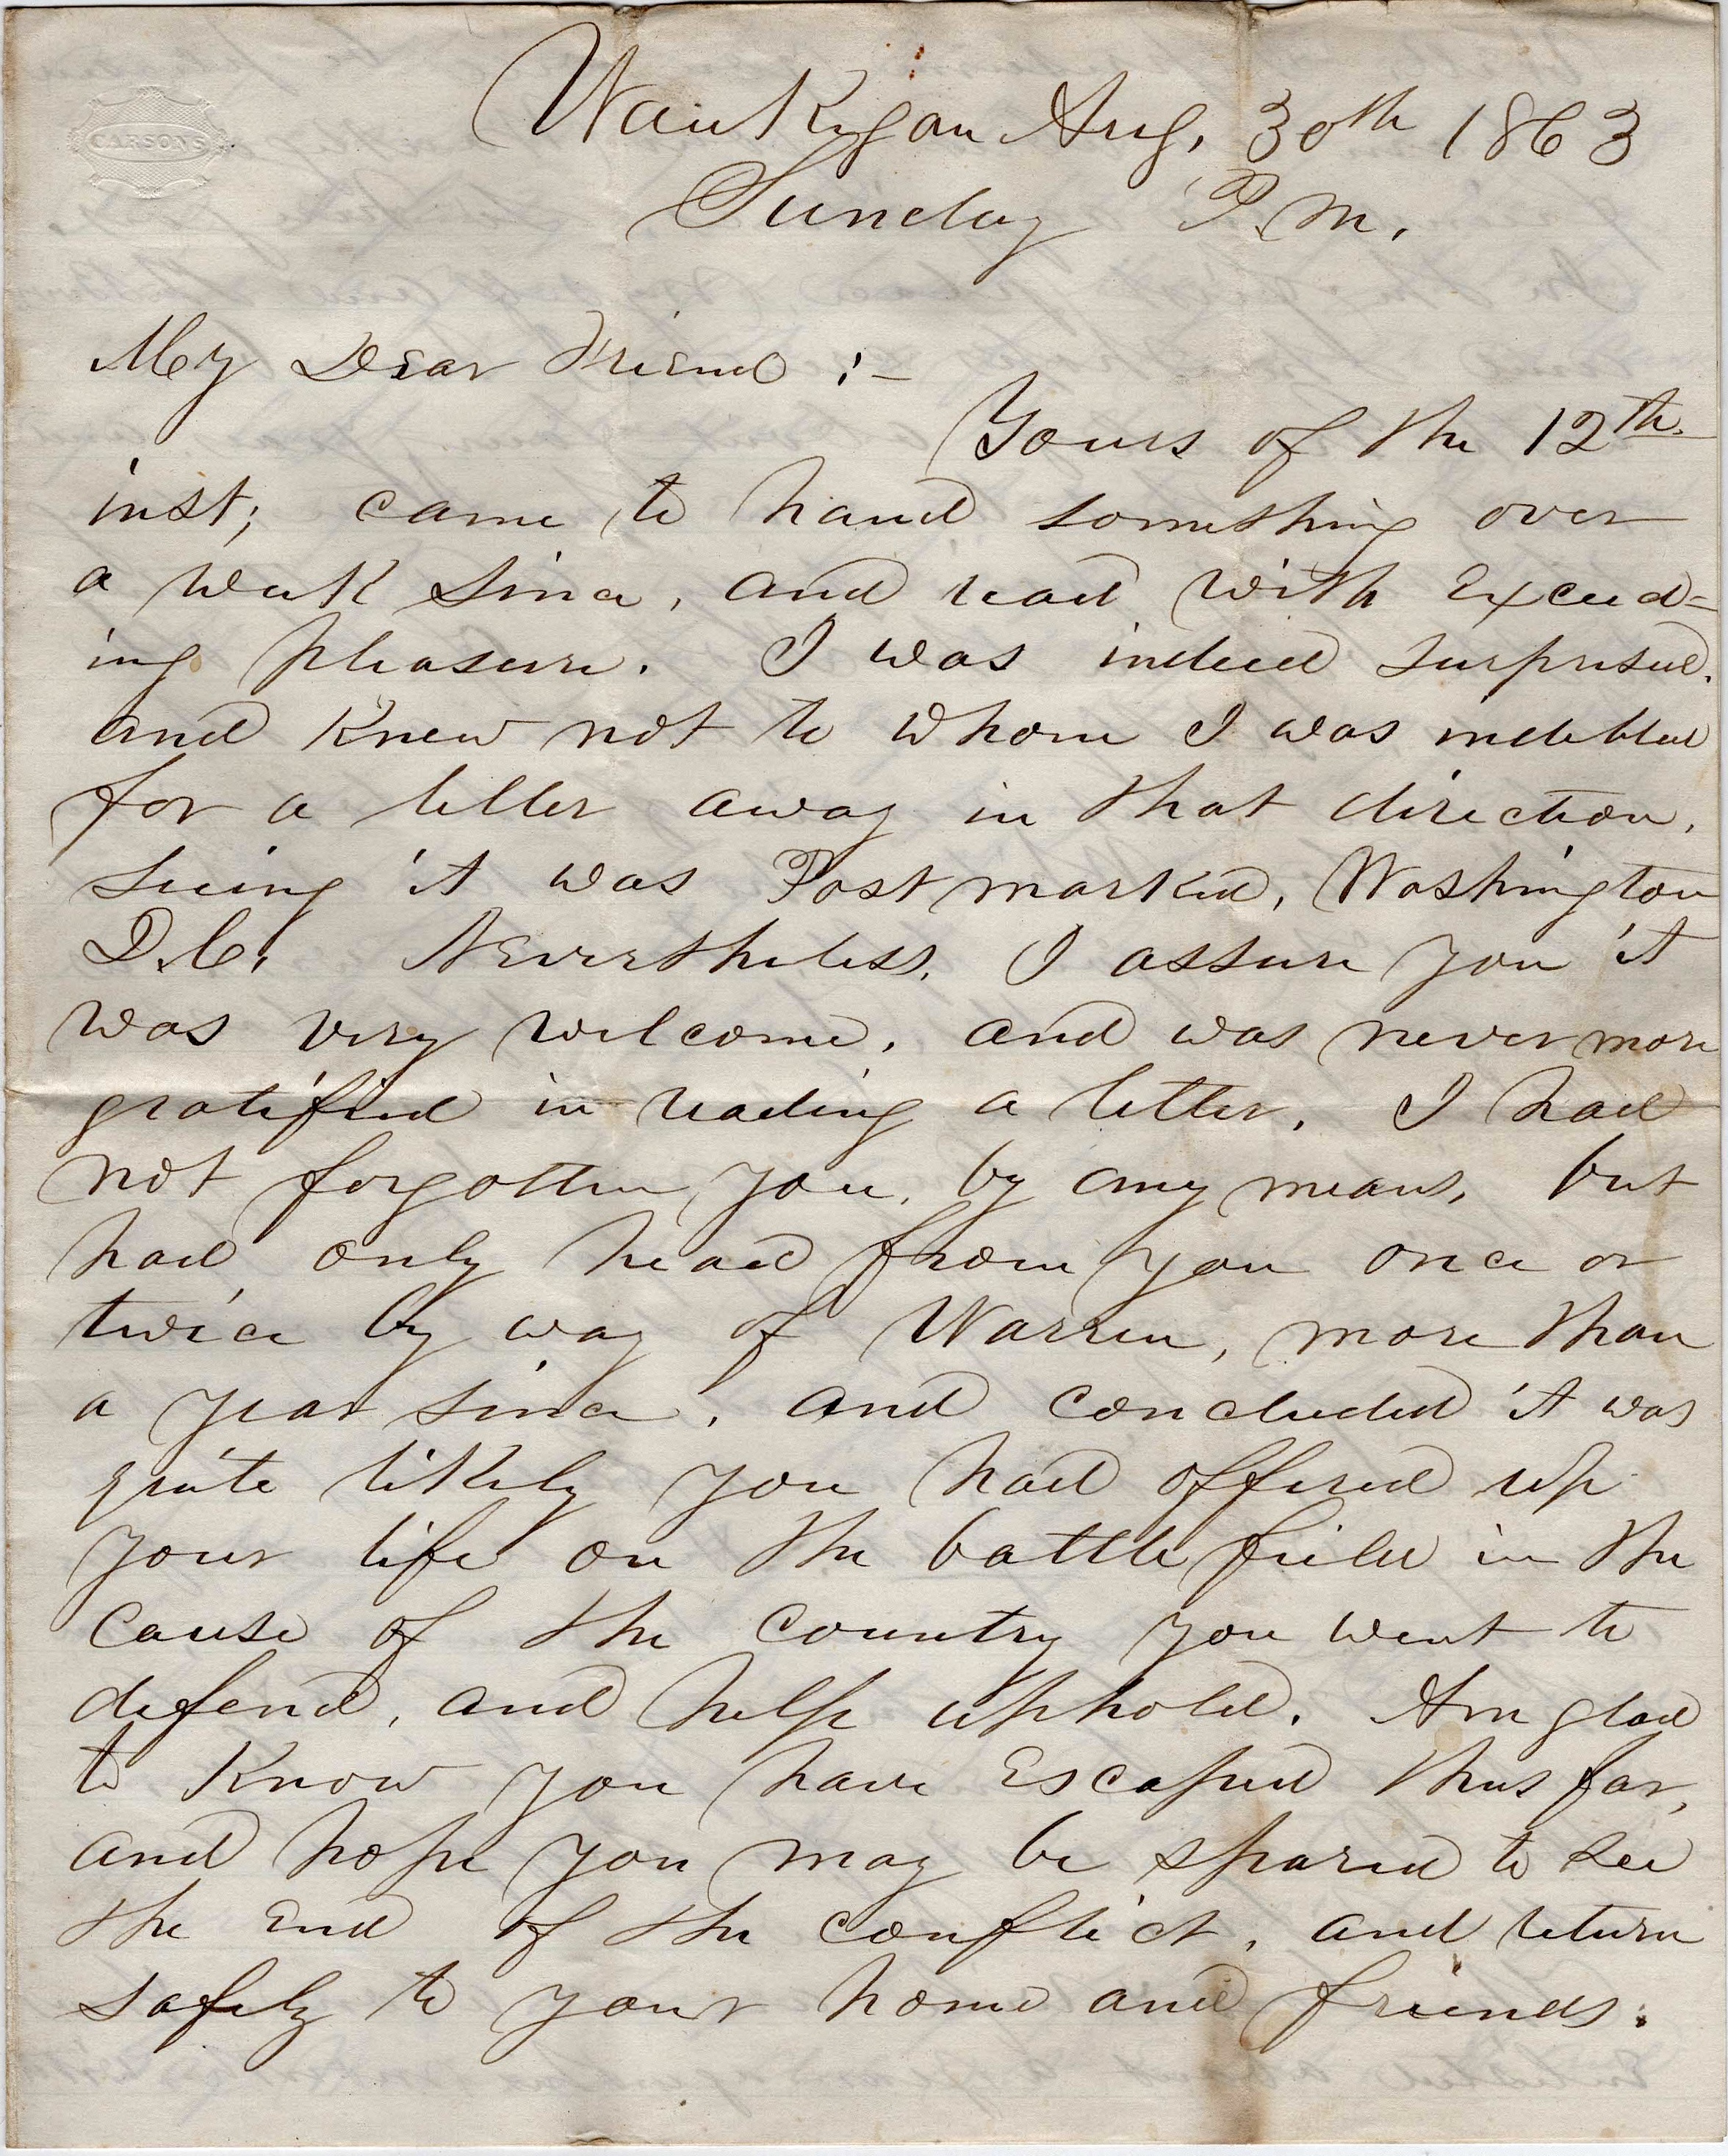 CARSONS
Waukegan Aug. 30th 1863
Sunday P.M.
My Dear Friend :-
Yours of the 12th
inst; came to hand something over
a week since, and read with exceed=
ing pleasure. I was indeed surprised.
and knew not to whom I was indebted
for a letter away in that direction,
seeing it was Postmarked, Washington
D.C. Nevertheless, I assure you it
was very welcome, and was never more
gratified in reading a letter. I had
not forgotten you, by any means, but
had only head from you once or
twice by way of Warren, more than
a year since, and concluded it was
quite likely you had offered up
your life on the battle field in the
cause of the country you went to
defend, and help uphold. Am glad
to know you have escaped thus far,
and hope you may be spared to see
the end of the conflict, and return
safely to your home and friends.